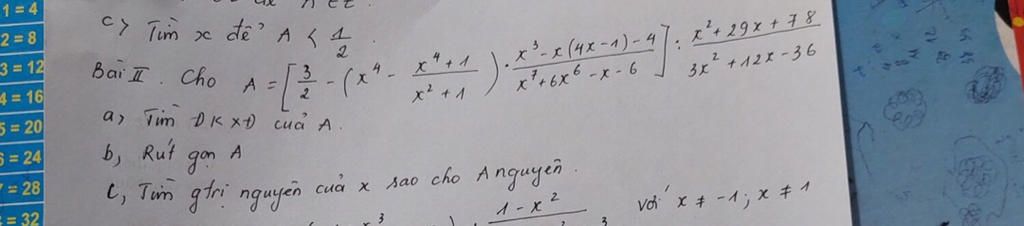 1 = 4
2 = 8
3 = 12
4 = 16
5 = 20
6 = 24
= 28
= 32
c) Tìm x để A < 1/2.
Bài II. Cho A = [3/2 - (x^4 - (x^4 + 1)/(x^2 + 1)) . (x^3 - x(4x - 1) - 4)/(x^7 + 6x^6 - x - 6)] : (x^2 + 29x + 78)/(3x^2 + 12x - 36)
a, Tìm ĐKXĐ của A.
b, Rút gọn A
c, Tìm gtrị nguyên của x sao cho A nguyên.
x^3 1 - x^2 với x ≠ -1; x ≠ 1